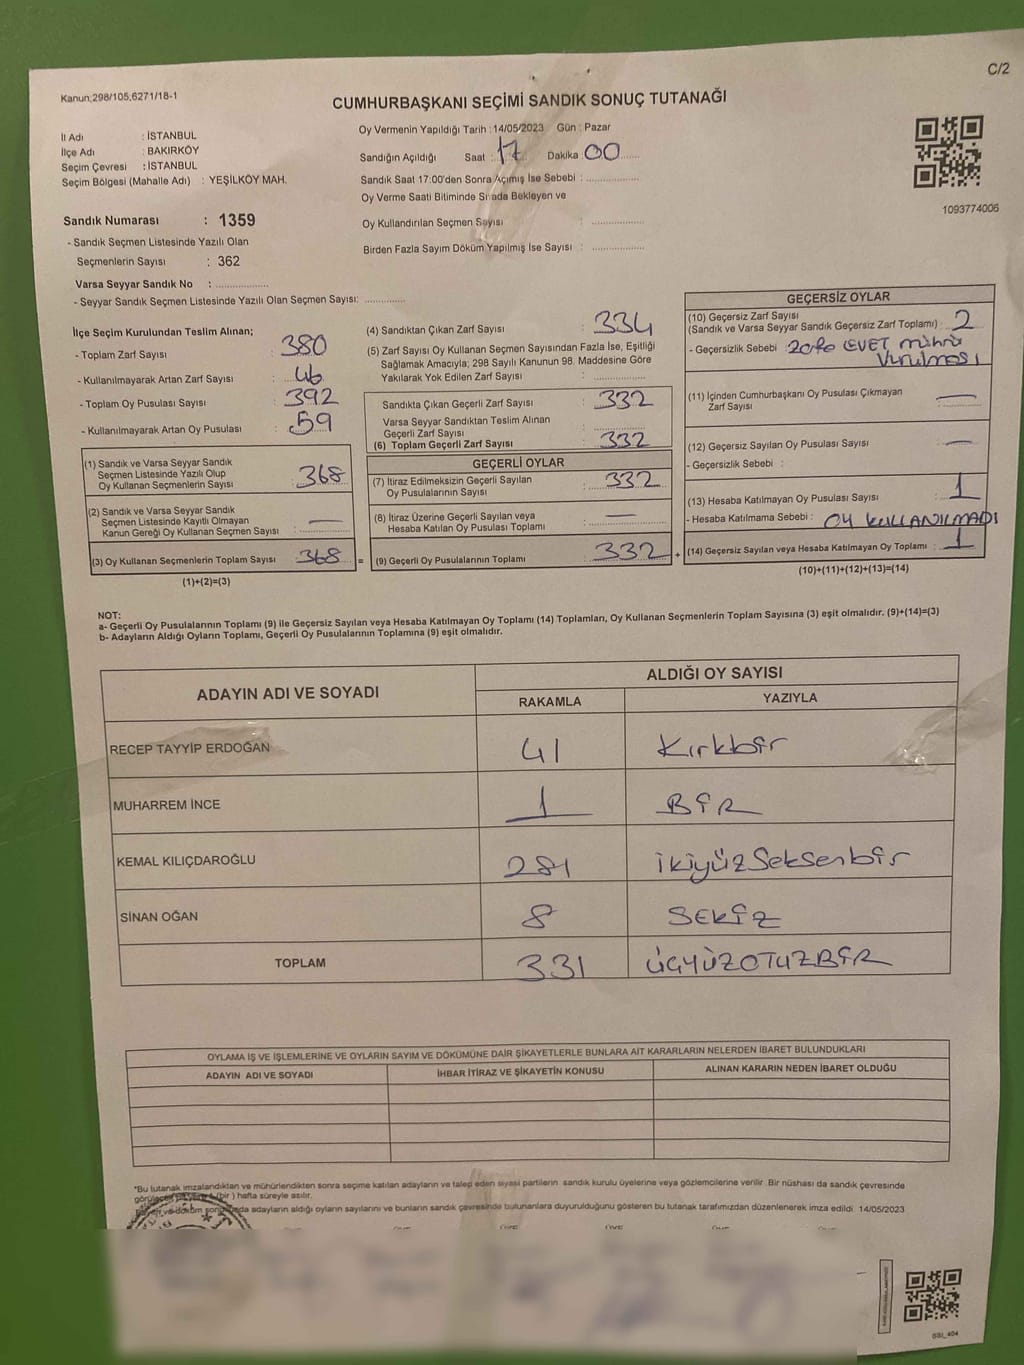 C/2
Kanun;298/105,6271/18-1
CUMHURBAŞKANI SEÇİMİ SANDIK SONUÇ TUTANAĞI
İl Adı : İSTANBUL
İlçe Adı : BAKIRKÖY
Seçim Çevresi : İSTANBUL
Seçim Bölgesi (Mahalle Adı) : YEŞİLKÖY MAH.
Sandık Numarası : 1359
- Sandık Seçmen Listesinde Yazılı Olan
Seçmenlerin Sayısı : 362
Varsa Seyyar Sandık No : ................
- Seyyar Sandık Seçmen Listesinde Yazılı Olan Seçmen Sayısı: ............
Oy Vermenin Yapıldığı Tarih : 14/05/2023 Gün : Pazar
Sandığın Açıldığı Saat : 17 Dakika 00
Sandık Saat 17:00'den Sonra Açımış İse Sebebi : ................
Oy Verme Saati Bitiminde Sırada Bekleyen ve
Oy Kullandırılan Seçmen Sayısı : ................
Birden Fazla Sayım Döküm Yapılmış İse Sayısı : ................
1093774006
İlçe Seçim Kurulundan Teslim Alınan;
- Toplam Zarf Sayısı : 380
- Kullanılmayarak Artan Zarf Sayısı : 46
- Toplam Oy Pusulası Sayısı : 392
- Kullanılmayarak Artan Oy Pusulası : 59
(1) Sandık ve Varsa Seyyar Sandık
Seçmen Listesinde Yazılı Olup
Oy Kullanan Seçmenlerin Sayısı : 368
(2) Sandık ve Varsa Seyyar Sandık
Seçmen Listesinde Kayıtlı Olmayan
Kanun Gereği Oy Kullanan Seçmen Sayısı : —
(3) Oy Kullanan Seçmenlerin Toplam Sayısı : 368 =
(1)+(2)=(3)
(4) Sandıktan Çıkan Zarf Sayısı : 334
(5) Zarf Sayısı Oy Kullanan Seçmen Sayısından Fazla İse, Eşitliği
Sağlamak Amacıyla; 298 Sayılı Kanunun 98. Maddesine Göre
Yakılarak Yok Edilen Zarf Sayısı : ................
Sandıkta Çıkan Geçerli Zarf Sayısı : 332
Varsa Seyyar Sandıktan Teslim Alınan
Geçerli Zarf Sayısı : ................
(6) Toplam Geçerli Zarf Sayısı : 332
GEÇERLİ OYLAR
(7) İtiraz Edilmeksizin Geçerli Sayılan
Oy Pusulalarının Sayısı : 332
(8) İtiraz Üzerine Geçerli Sayılan veya
Hesaba Katılan Oy Pusulası Toplamı : —
(9) Geçerli Oy Pusulalarının Toplamı : 332 +
GEÇERSİZ OYLAR
(10) Geçersiz Zarf Sayısı
(Sandık ve Varsa Seyyar Sandık Geçersiz Zarf Toplamı) : 2
- Geçersizlik Sebebi : EVET mührü
vurulması
(11) İçinden Cumhurbaşkanı Oy Pusulası Çıkmayan
Zarf Sayısı : —
(12) Geçersiz Sayılan Oy Pusulası Sayısı : —
- Geçersizlik Sebebi :
(13) Hesaba Katılmayan Oy Pusulası Sayısı : 1
- Hesaba Katılmama Sebebi : OY KULLANILMADI
(14) Geçersiz Sayılan veya Hesaba Katılmayan Oy Toplamı : 1
(10)+(11)+(12)+(13)=(14)
NOT:
a- Geçerli Oy Pusulalarının Toplamı (9) ile Geçersiz Sayılan veya Hesaba Katılmayan Oy Toplamı (14) Toplamları, Oy Kullanan Seçmenlerin Toplam Sayısına (3) eşit olmalıdır. (9)+(14)=(3)
b- Adayların Aldığı Oyların Toplamı, Geçerli Oy Pusulalarının Toplamına (9) eşit olmalıdır.
ADAYIN ADI VE SOYADI
ALDIĞI OY SAYISI
RAKAMLA YAZIYLA
RECEP TAYYİP ERDOĞAN 41 Kırkbir
MUHARREM İNCE 1 BİR
KEMAL KILIÇDAROĞLU 281 ikiyüzSeksenbir
SİNAN OĞAN 8 SEKİZ
TOPLAM 331 ÜÇYÜZOTUZBİR
OYLAMA İŞ VE İŞLEMLERİNE VE OYLARIN SAYIM VE DÖKÜMÜNE DAİR ŞİKAYETLERLE BUNLARA AİT KARARLARIN NELERDEN İBARET BULUNDUKLARI
ADAYIN ADI VE SOYADI İHBAR İTİRAZ VE ŞİKAYETİN KONUSU ALINAN KARARIN NEDEN İBARET OLDUĞU
*Bu tutanak imzalandıktan ve mühürlendikten sonra seçime katılan adayların ve talep eden siyasi partilerin sandık kurulu üyelerine veya gözlemcilerine verilir. Bir nüshası da sandık çevresinde
(bir) hafta süreyle asılır.
adayların aldığı oyların sayılarını ve bunların sandık çevresinde bulunanlara duyurulduğunu gösteren bu tutanak tarafımızdan düzenlenerek imza edildi. 14/05/2023
SSI_404